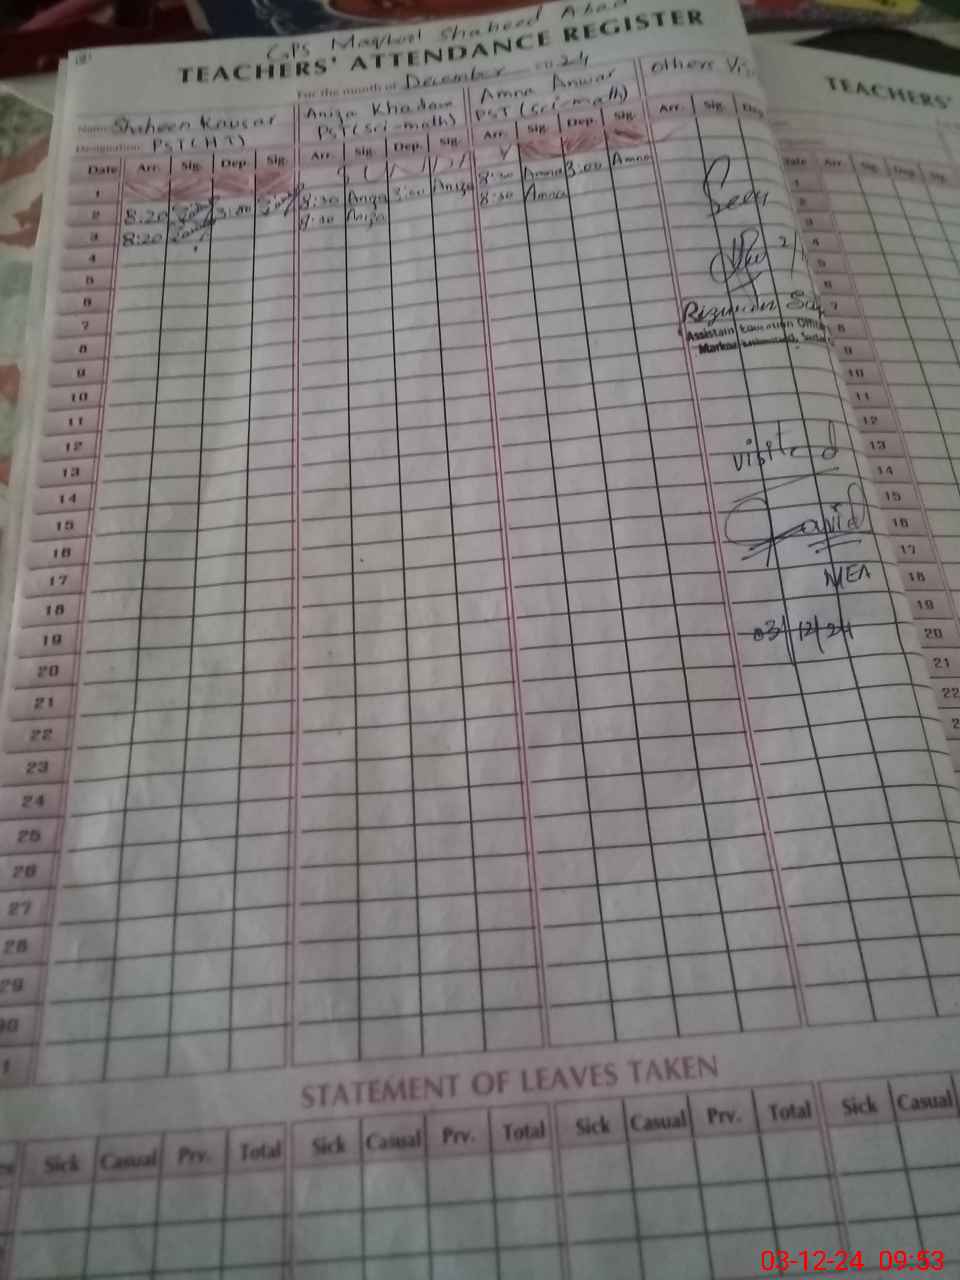 GPS Maqbool Shaheed Abad
TEACHERS' ATTENDANCE REGISTER
For the month of December 2024
Name Shaheen Kausar Aniza Khadam Amna Anwar Others
Designation PST(H.T) PST(Sci-math) PST(Sci-math)
Date Arr. Sig. Dep. Sig. Arr. Sig. Dep. Sig. Arr. Sig. Dep. Sig. Arr. Sig. Dep.
1
2 8:20 3:00 8:30 Aniza 3:00 Aniza 8:30 Amna 3:00 Amna
3 8:20 8:30 Aniza 8:30 Amna
4
5
6
7
8
9
10
11
12
13
14
15
16
17
18
19
20
21
22
23
24
25
26
27
28
29
30
1
Rizwan
Assistant Education
visited
Javid
MEA
03/12/24
STATEMENT OF LEAVES TAKEN
Sick Casual Prv. Total Sick Casual Prv. Total Sick Casual Prv. Total Sick Casual
TEACHERS'
Date Arr. Sig. Dep. Sig.
1
2
3
4
5
6
7
8
9
10
11
12
13
14
15
16
17
18
19
20
21
22
2
03-12-24 09:53